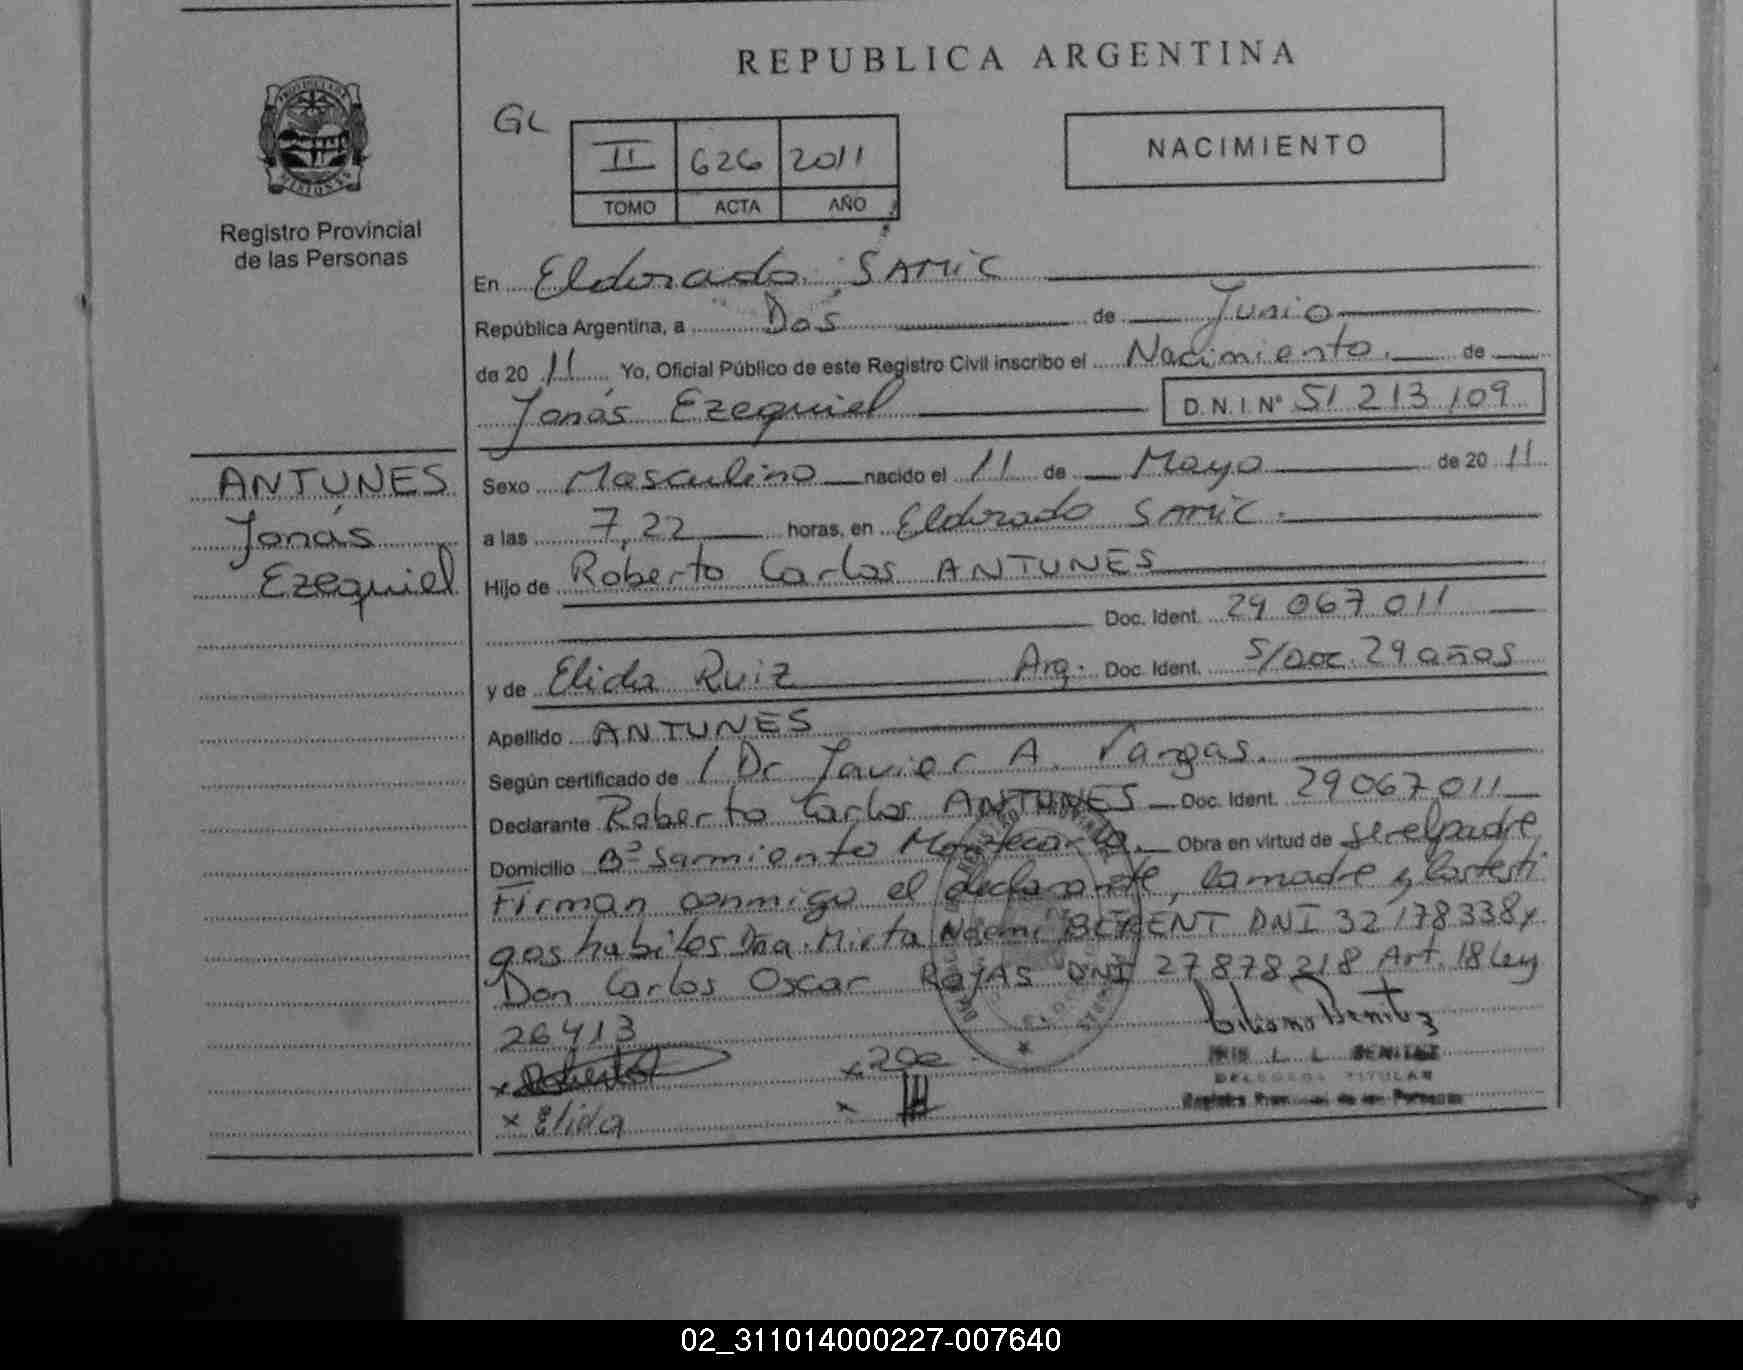 REPUBLICA ARGENTINA
PROVINCIA DE MISIONES
Registro Provincial
de las Personas
GL
II 626 2011
TOMO ACTA AÑO
NACIMIENTO
En Eldorado SAMIC
República Argentina, a Dos de Junio
de 20 11 Yo, Oficial Público de este Registro Civil inscribo el Nacimiento. de
Jonás Ezequiel D.N.I. Nº 51 213 109
ANTUNES
Jonás
Ezequiel
Sexo Masculino nacido el 11 de Mayo de 20 11
a las 7,22 horas, en Eldorado SAMIC.
Hijo de Roberto Carlos ANTUNES
Doc. Ident. 29 067 011
y de Elida Ruiz Arg. Doc. Ident. S/Doc. 29 años
Apellido ANTUNES
Según certificado de / Dr Javier A. Vargas.
Declarante Roberto Carlos ANTUNES Doc. Ident. 29 067 011
Domicilio Bº Sarmiento Montecarlo. Obra en virtud de ser el padre
Firman conmigo el declarante, la madre y los testi
gos habiles Dña. Mirta Noemi DNI 32 178338 y
Don Carlos Oscar ROJAS DNI 27 878 218 Art. 18 Ley
26413
x Roberto
x Elida
x
x
BENITEZ
DELEGADA TITULAR
Registro Provincial de las Personas
02_311014000227-007640